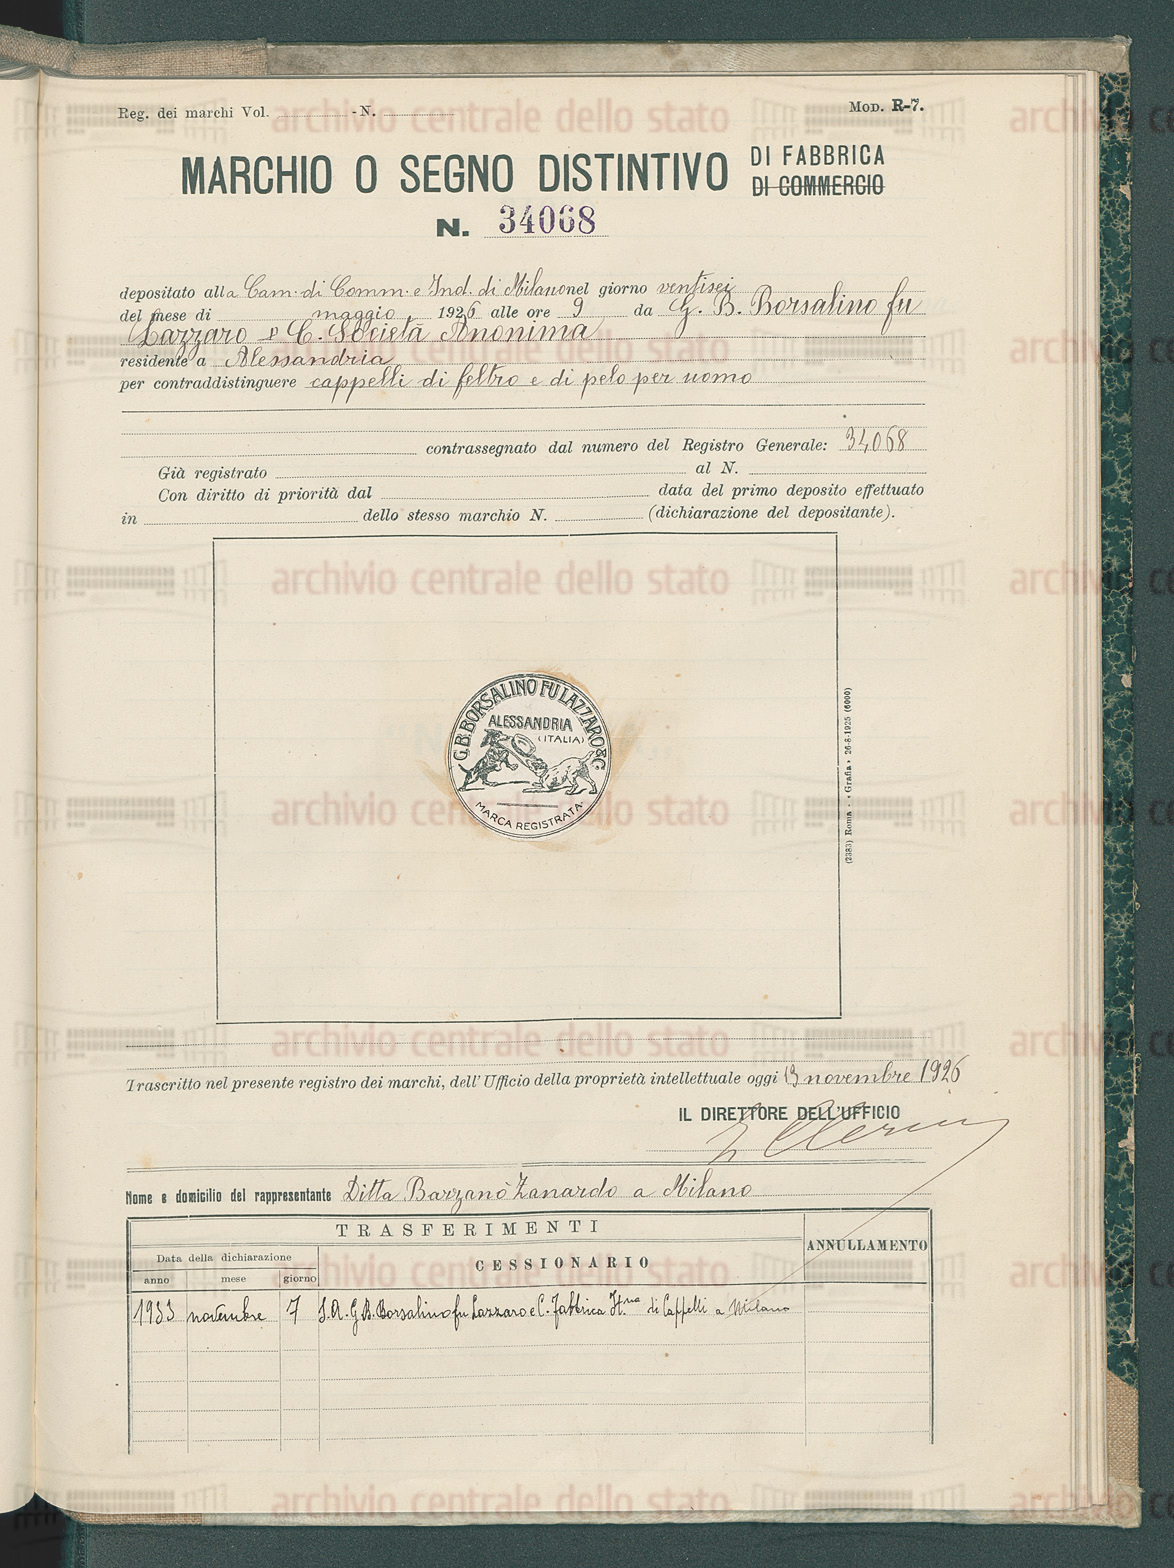 Reg. dei marchi Vol. - N. Mod. R-7.
MARCHIO O SEGNO DISTINTIVO DI FABBRICA
DI COMMERCIO
N. 34068
depositato alla Cam. di Comm. e Ind. di Milano nel giorno ventisei
del mese di maggio 1926 alle ore 9 da G. B. Borsalino fu
Lazzaro e C. Società Anonima
residente a Alessandria
per contraddistinguere cappelli di feltro e di pelo per uomo
contrassegnato dal numero del Registro Generale: 34068
Già registrato al N.
Con diritto di priorità dal data del primo deposito effettuato
in dello stesso marchio N. (dichiarazione del depositante).
G.B. BORSALINO FU LAZZARO & C.
ALESSANDRIA
(ITALIA)
MARCA REGISTRATA
(2383) Roma - «Grafia» 26-8-1925 (6000)
Trascritto nel presente registro dei marchi, dell'Ufficio della proprietà intellettuale oggi 13 novembre 1926
IL DIRETTORE DELL'UFFICIO
Nome e domicilio del rappresentante Ditta Barzanò Zanardo a Milano
TRASFERIMENTI
ANNULLAMENTO
Data della dichiarazione
CESSIONARIO
anno mese giorno
1933 novembre 7 S.A. G.B. Borsalino fu Lazzaro e C. Fabbrica It.na di Cappelli a Milano
archivio centrale dello stato